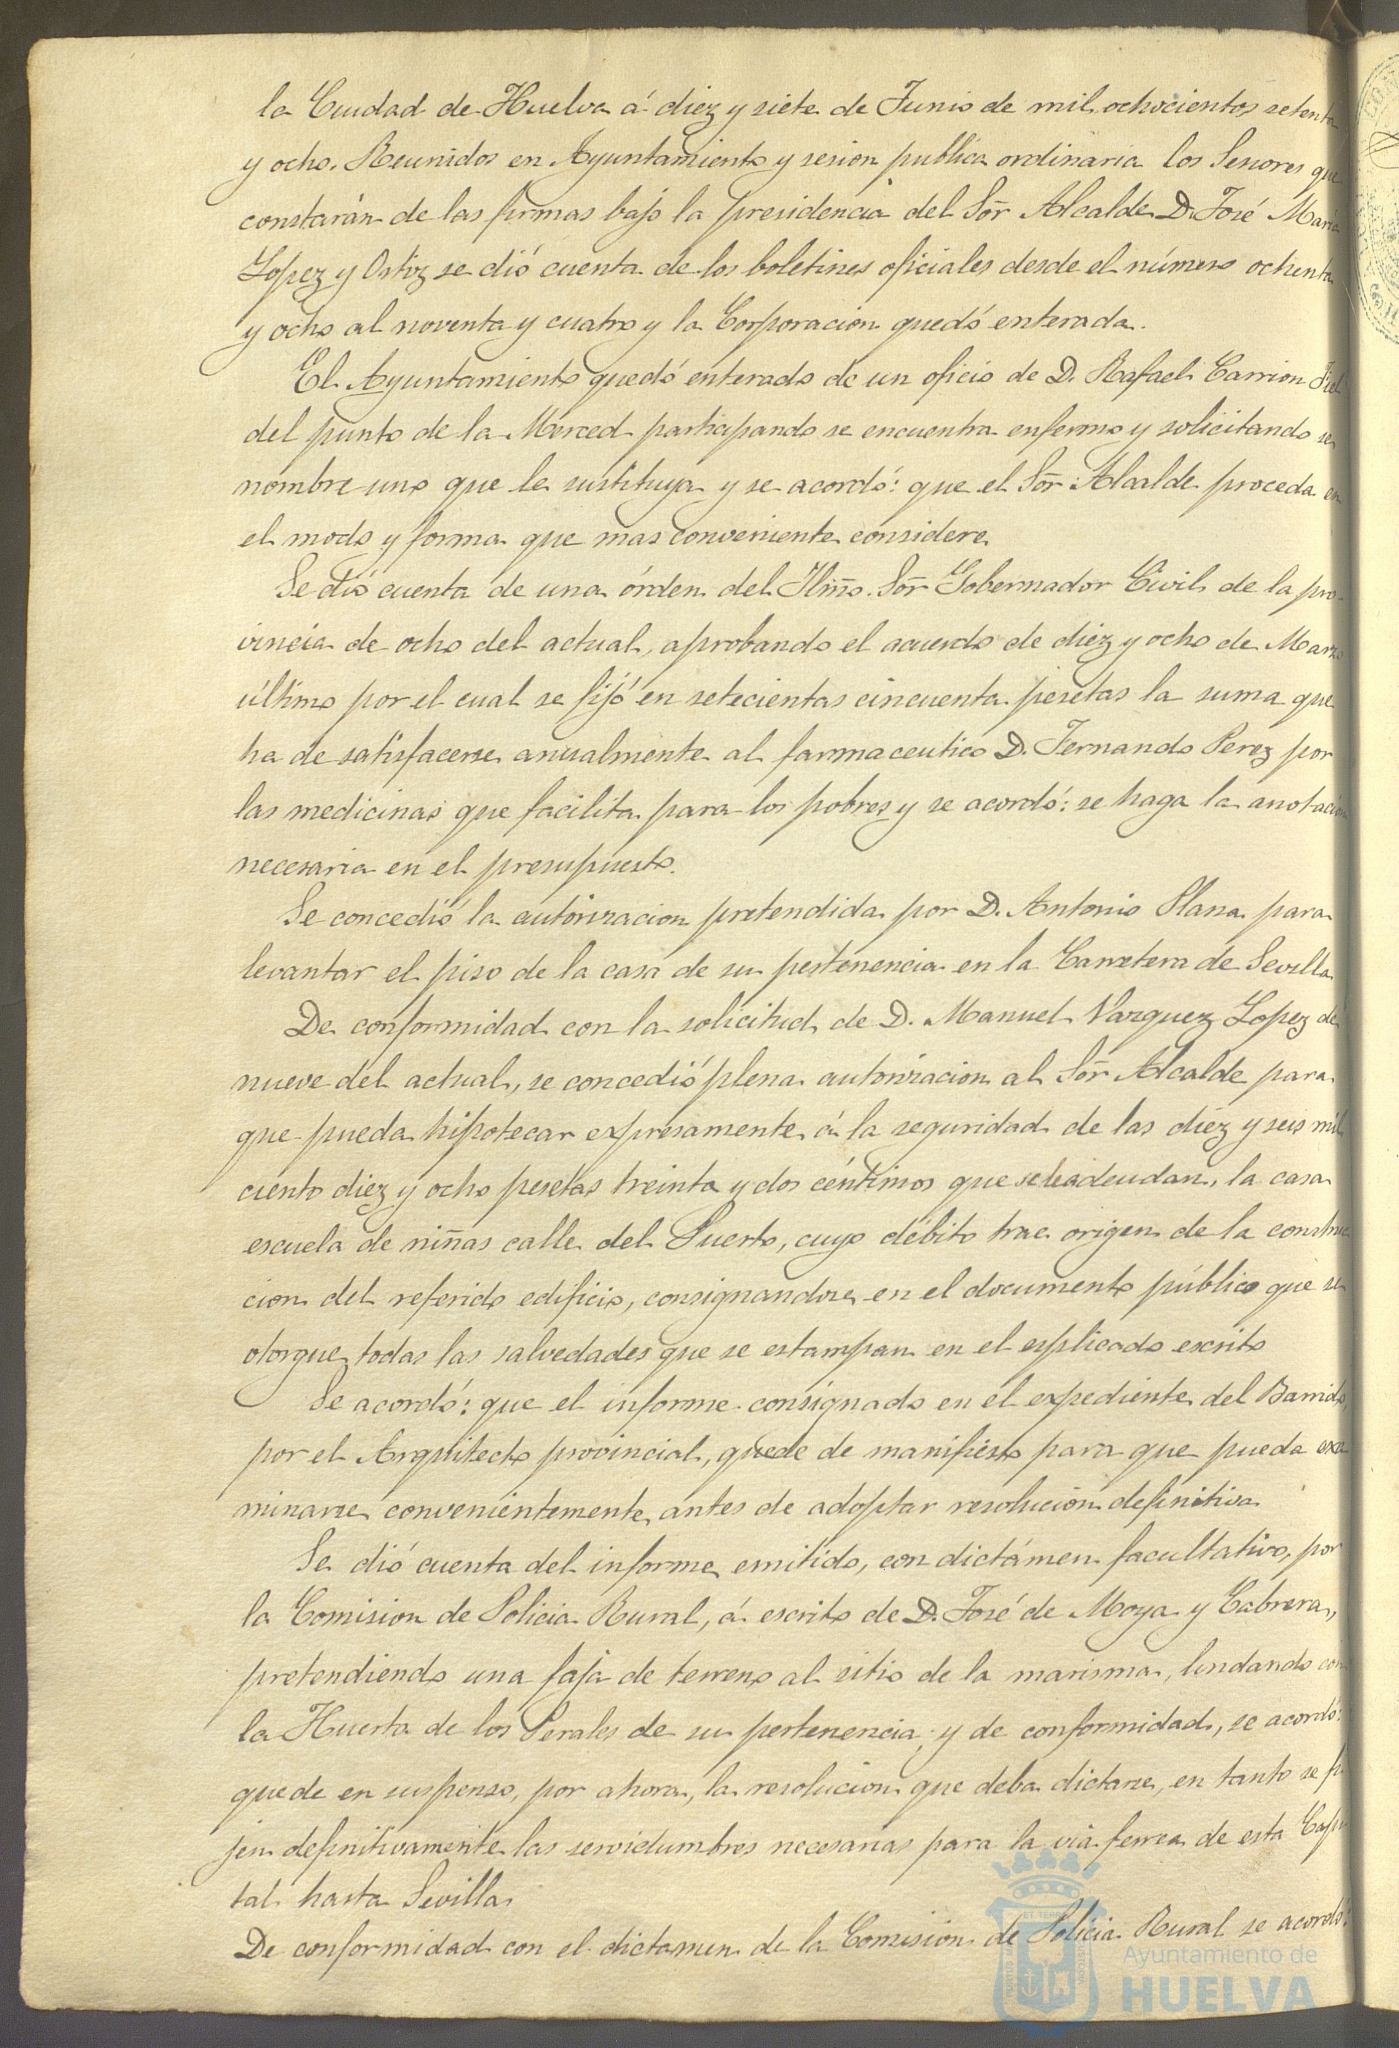 la Ciudad de Huelva á diez y siete de Junio de mil ochocientos setenta
y ocho. Reunidos en Ayuntamiento y sesion publica ordinaria los Señores que
constarán de las firmas bajo la presidencia del Sõr Alcalde D. José Maria
Lopez y Ortiz se dió cuenta de los boletines oficiales desde el número ochenta
y ocho al noventa y cuatro y la Corporacion quedó enterada.
El Ayuntamiento quedó enterado de un oficio de D. Rafael Carrion Fiel
del punto de la Merced participando se encuentra enfermo y solicitando se
nombre uno que le sustituya y se acordó: que el Sõr Alcalde proceda en
el modo y forma que mas conveniente considere.
Se dió cuenta de una órden del Ilmõ. Sõr Gobernador Civil de la pro-
vincia de ocho del actual, aprobando el acuerdo de diez y ocho de Marzo
último por el cual se fijó en setecientas cincuenta pesetas la suma que
ha de satisfacerse anualmente al farmaceutico D. Fernando Perez por
las medicinas que facilita para los pobres y se acordó: se haga la anotacion
necesaria en el presupuesto.
Se concedió la autorizacion pretendida por D. Antonio Plana para
levantar el piso de la casa de su pertenencia en la Carretera de Sevilla
De conformidad con la solicitud de D. Manuel Vazquez Lopez de
nueve del actual, se concedió plena autorizacion al Sõr Alcalde para
que pueda hipotecar expresamente á la seguridad de las diez y seis mil
ciento diez y ocho pesetas treinta y dos céntimos que se le adeudan, la casa
escuela de niñas calle del Puerto, cuyo débito trae origen de la construc
cion del referido edificio, consignandose en el documento público que se
otorgue todas las salvedades que se estampan en el esplicado escrito
Se acordó: que el informe consignado en el expediente del Barrido,
por el Arquitecto provincial, quede de manifiesto para que pueda exa
minarse convenientemente antes de adoptar resolucion definitiva
Se dió cuenta del informe emitido, con dictámen facultativo, por
la Comision de Policia Rural, á escrito de D. José de Moya y Cabrera,
pretendiendo una faja de terreno al sitio de la marisma, lindando con
la Huerta de los Perales de su pertenencia; y de conformidad, se acordó:
quede en suspenso, por ahora, la resolucion que deba dictarse, en tanto se fi
jen definitivamente las servidumbres necesarias para la via ferrea de esta Capi
tal hasta Sevilla.
De conformidad con el dictamen de la Comision de Policia Rural se acordó:
Ayuntamiento de
HUELVA